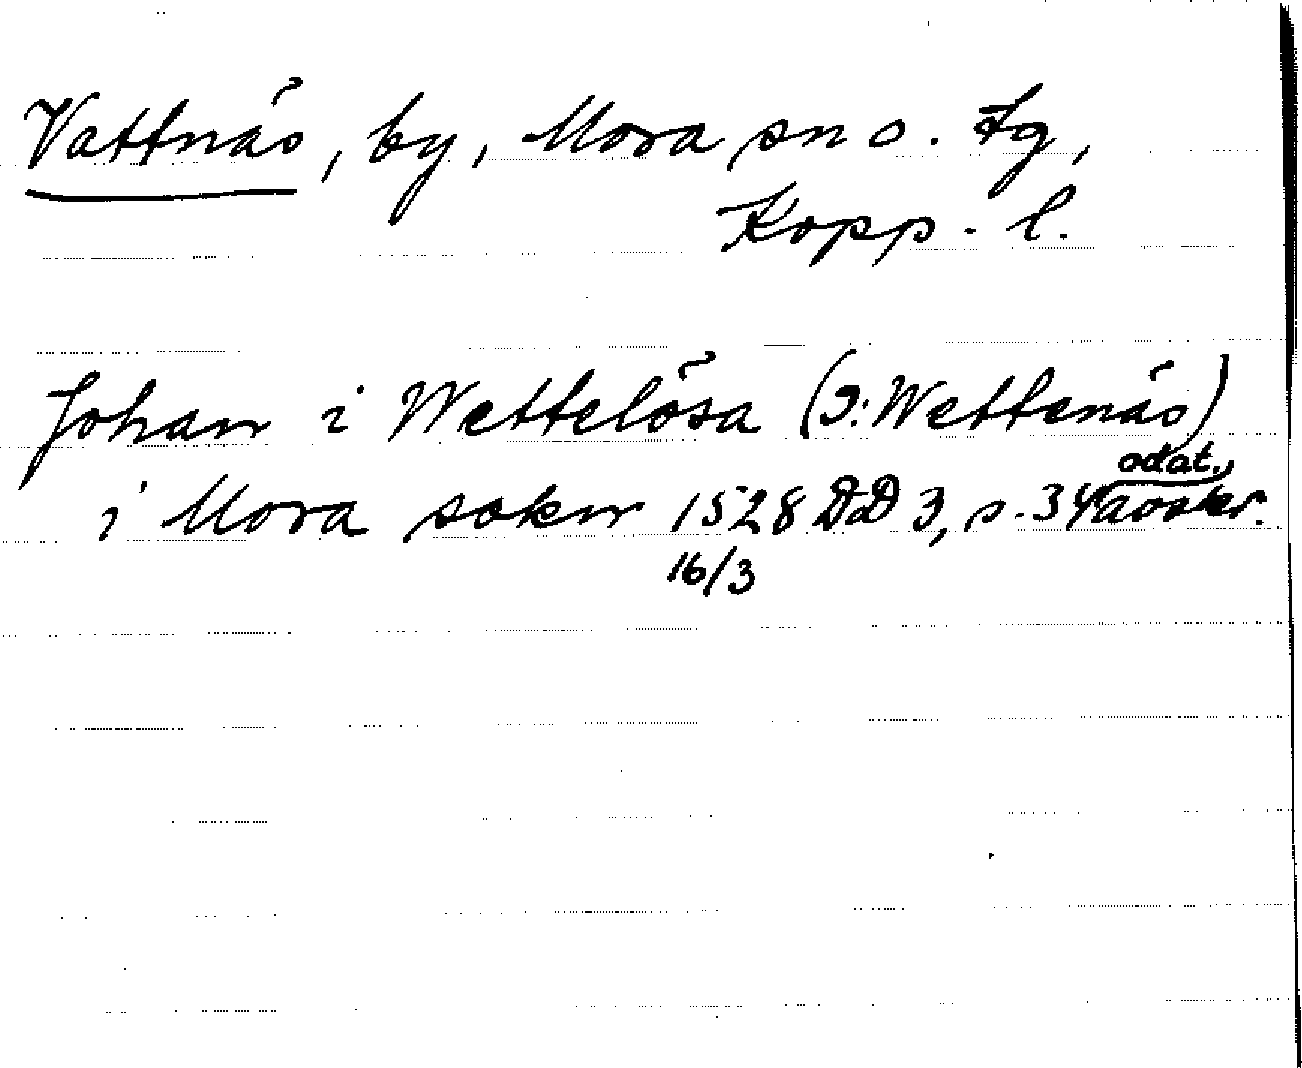 Vattnäs, by, Mora sn o. tg,
Kopp. l.
Johan i Wettelösa (ɔ: Wettenäs)
i Mora sokn 1528 DD 3, s. 34 odat. avskr.
16/3